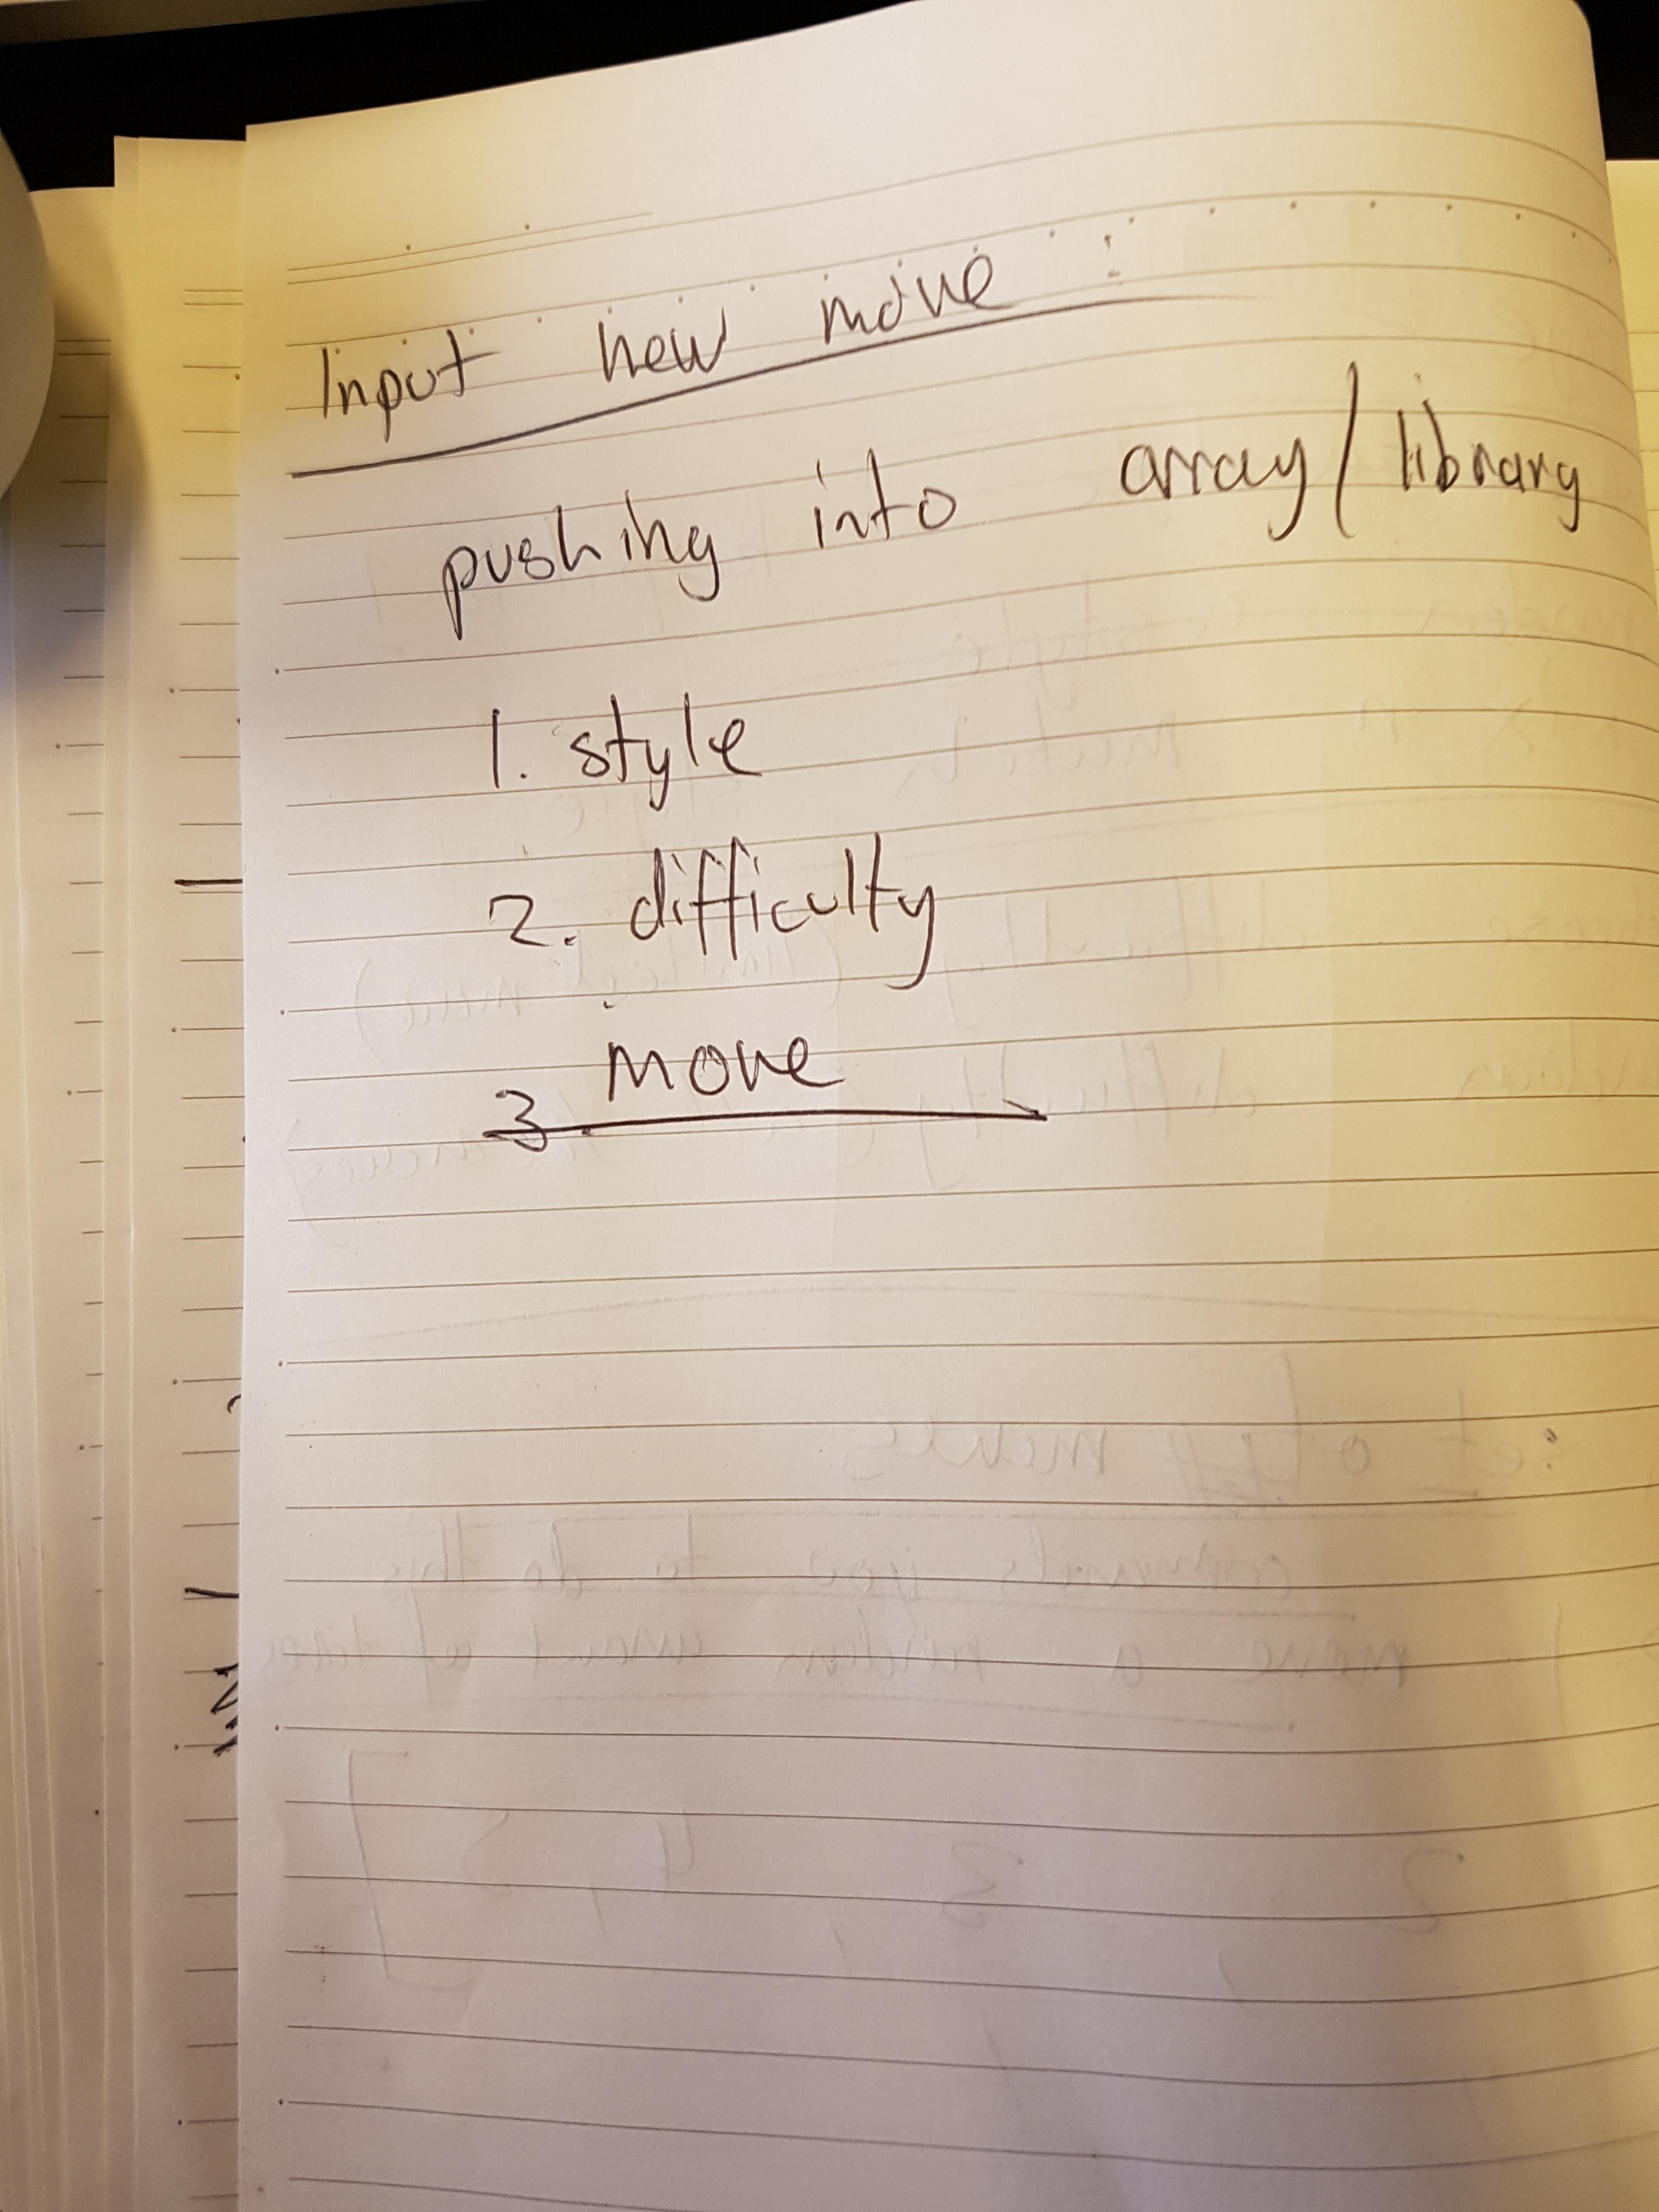 Input new move :
pushing into array / library
1. style
2. difficulty
3. move